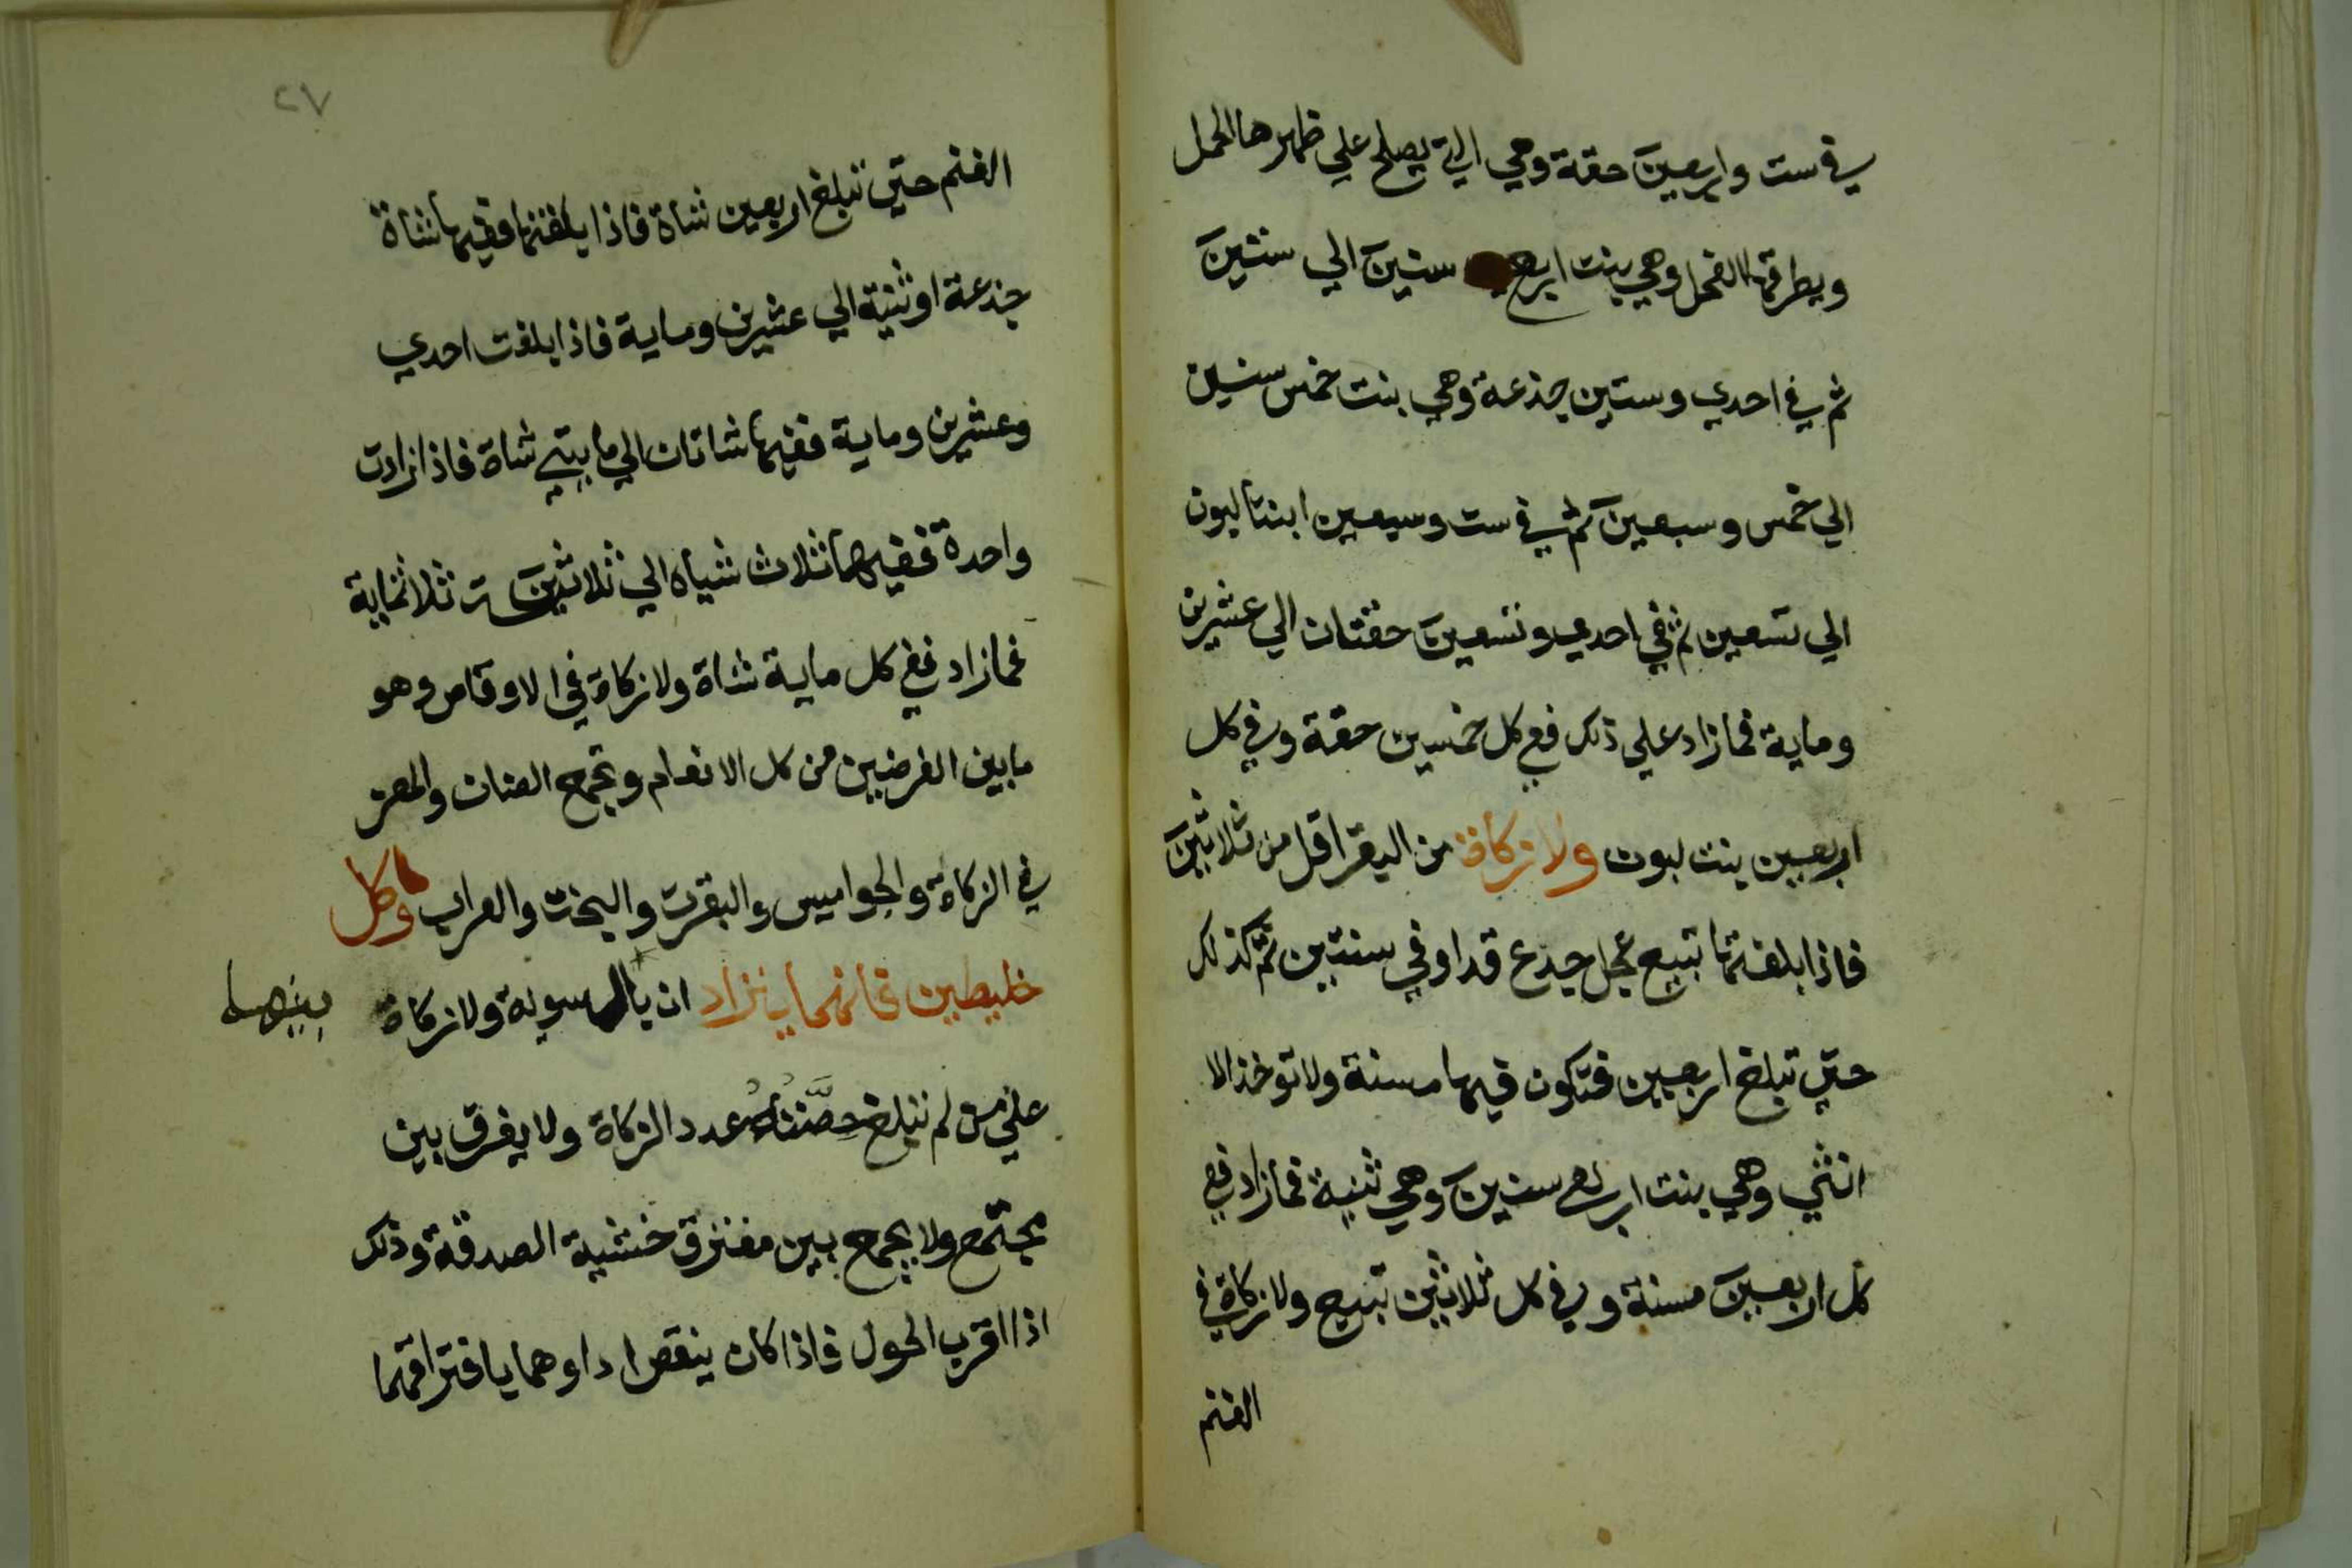 في ست واربعين حقة وهي التي يصلح علي ظهرها الحمل
ويطرقها الفحل وهي بنت اربع سنين الي ستين
ثم في احدي وستين جذعة وهي بنت خمس سنين
الي خمس وسبعين ثم في ست وسبعين ابنتا لبون
الي تسعين ثم في احدي وتسعين حقتان الي عشرين
وماية فمازاد علي ذلك ففي كل خمسين حقة وفي كل
اربعين بنت لبون ولا زكاة من البقر اقل من ثلاثين
فاذا بلغتها تبيع عجل جدع قد اوفي سنتين ثم كذلك
حتي تبلغ اربعين فتكون فيها مسنة ولا توخذ الا
انثي وهي بنت اربع سنين وهي ثنية فمازاد ففي
كل اربعين مسنة وفي كل ثلاثين تبيع ولا زكاة في
الغنم
٢٧
الغنم حتي تبلغ اربعين شاة فاذا بلغتها ففيها شاة
جذعة او ثنية الي عشرين وماية فاذا بلغت احدي
وعشرين وماية ففيها شاتان الي مايتي شاة فاذا زادت
واحدة ففيها ثلاث شياه الي ثلاثين ثلاثماية
فمازاد ففي كل ماية شاة ولا زكاة في الاوقاص وهو
مابين الفرضين من كل الانعام وتجمع الضان والمعز
في الزكاة والجواميس والبقرت والبخت والعراب وكل
خليطين فانهما يتراد ان بالسوية ولا زكاة
بينهما
علي من لم تبلغ حصته عدد الزكاة ولا يفرق بين
مجتمع ولا يجمع بين مفترق خشية الصدقة وذلك
اذا اقرب الحول فاذا كان ينقص اداوهما بافتراقهما